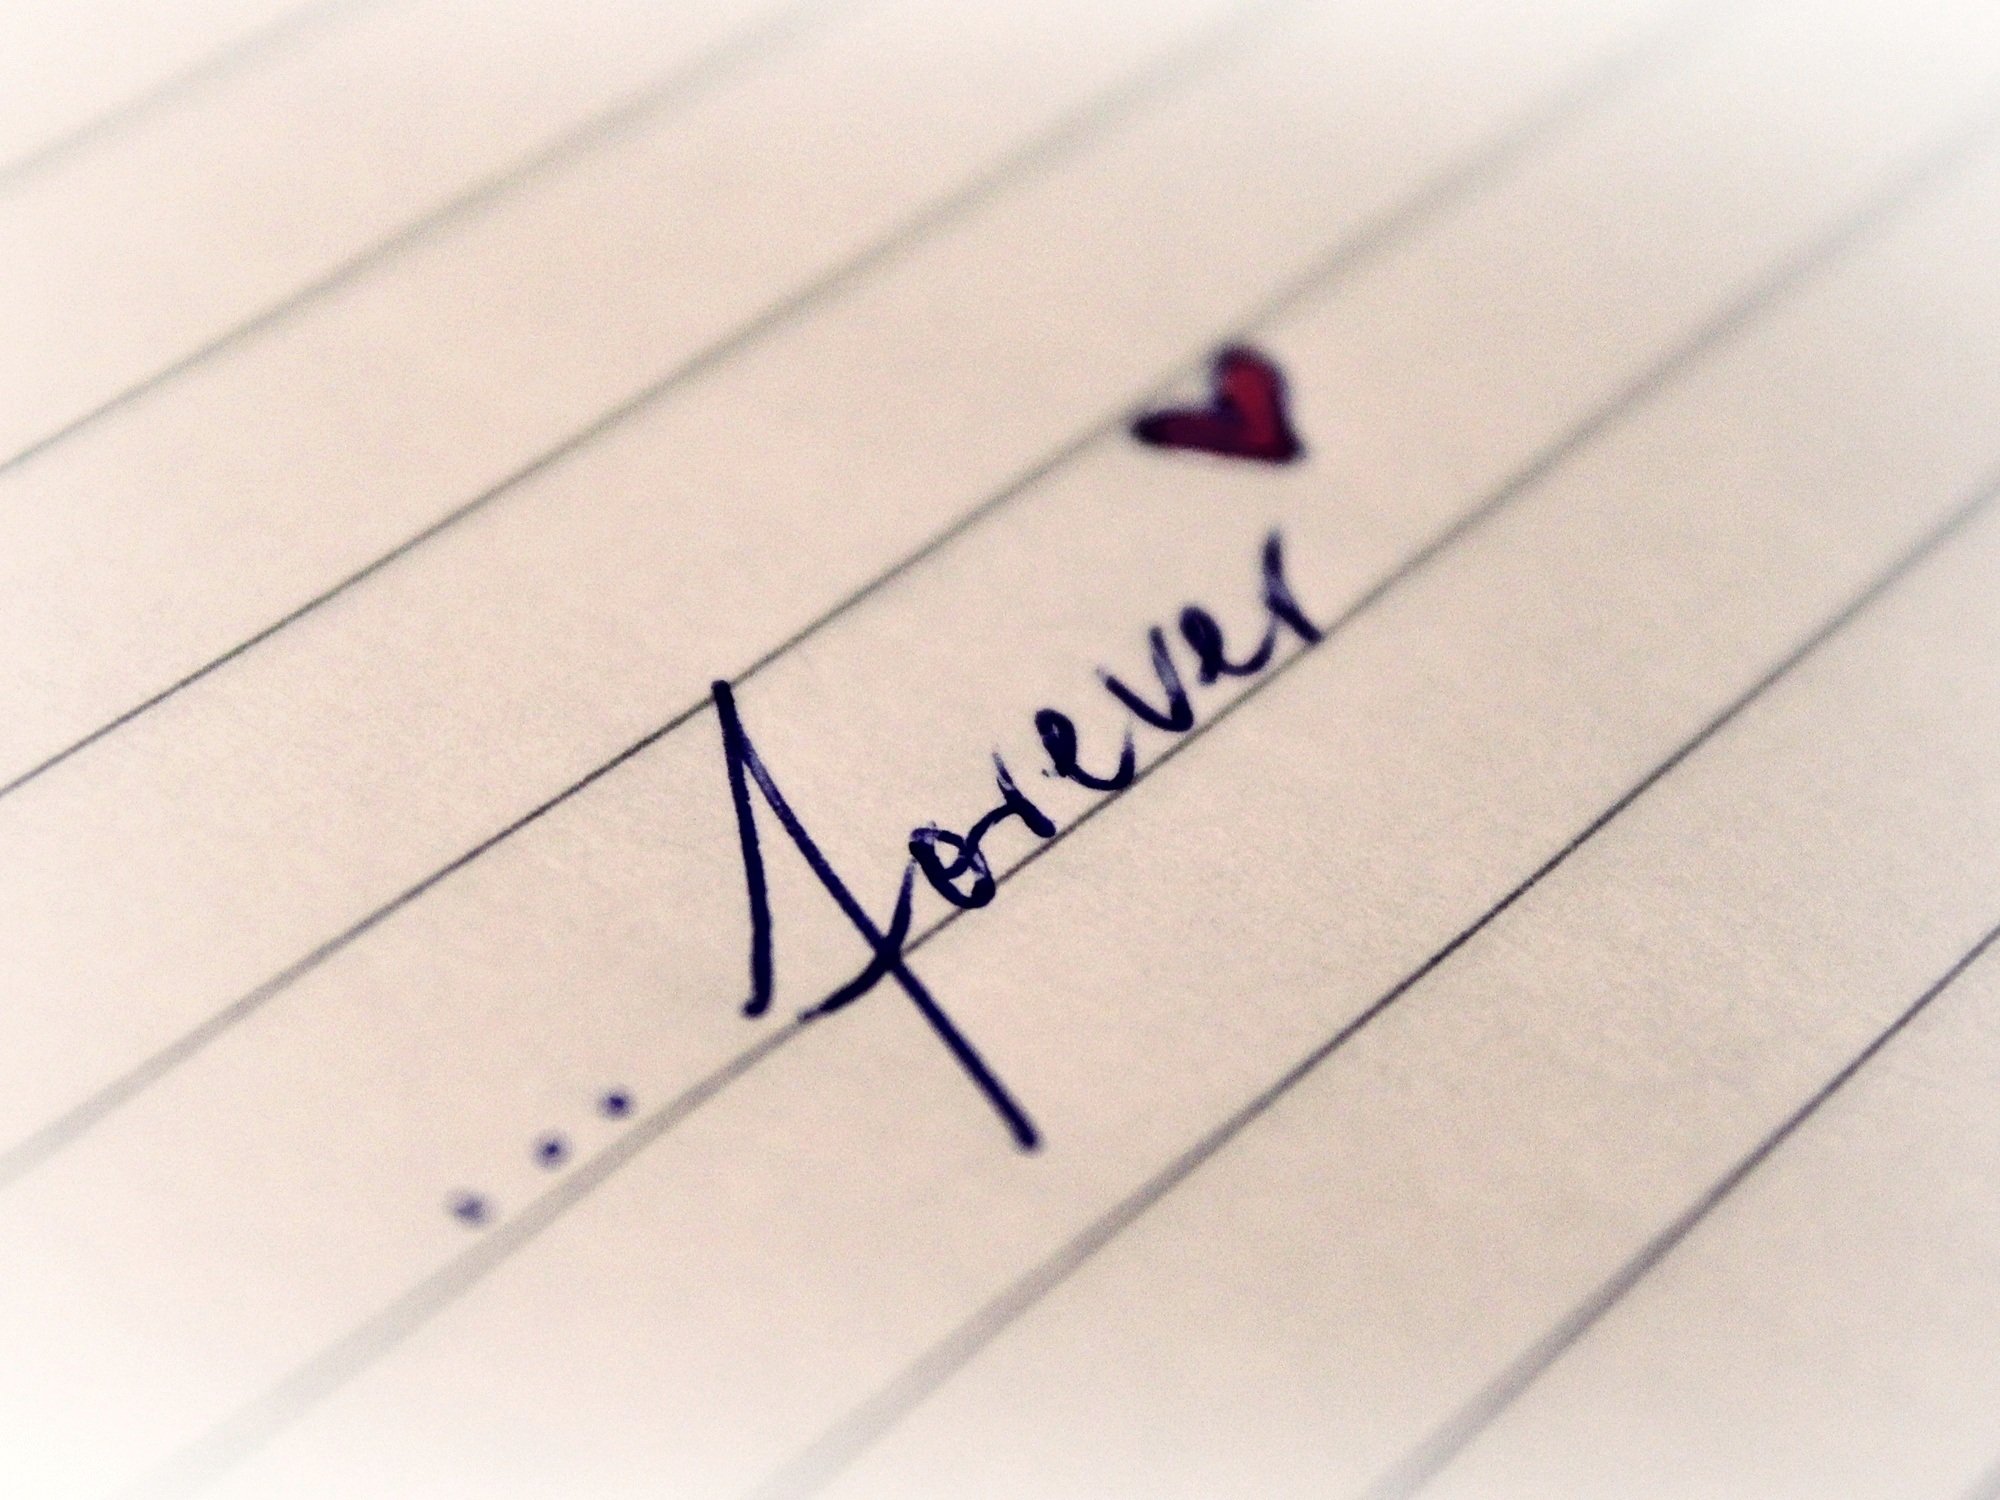 ... forever